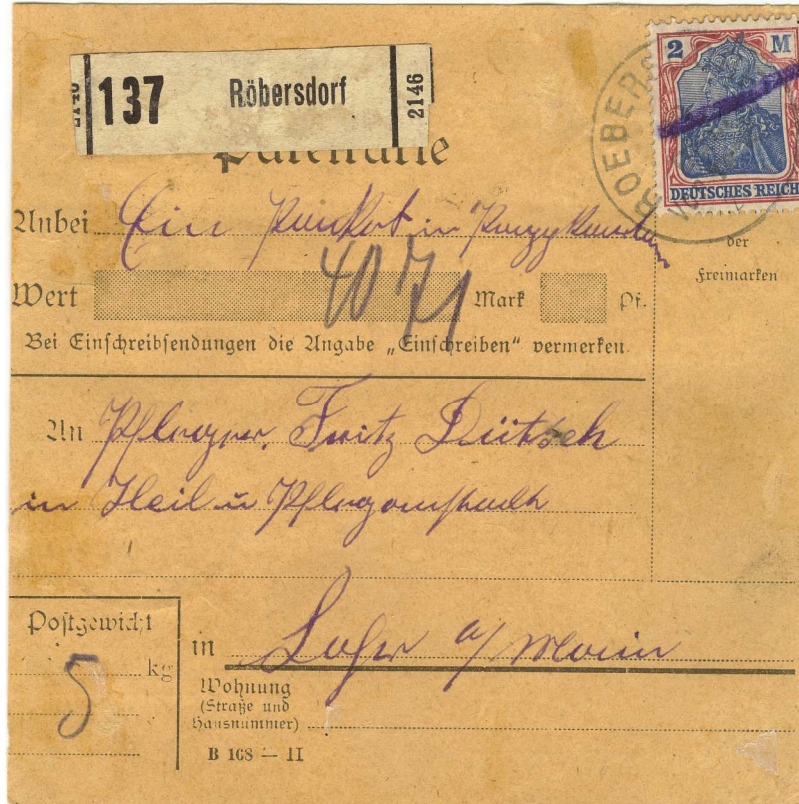 137 Röbersdorf 2146
2146
2 M
DEUTSCHES REICH
ROEBERS
Paketkarte
Anbei Ein Paket in
der
Freimarken
Wert 4071 Mark Pf.
Bei Einschreibsendungen die Angabe „Einschreiben" vermerken.
An Pfleger. Fritz Dütsch
in Heil u Pflegeanstalt
Postgewicht
5 kg
in Lohr a/ Main
Wohnung
(Straße und
Hausnummer)
B 168 — II